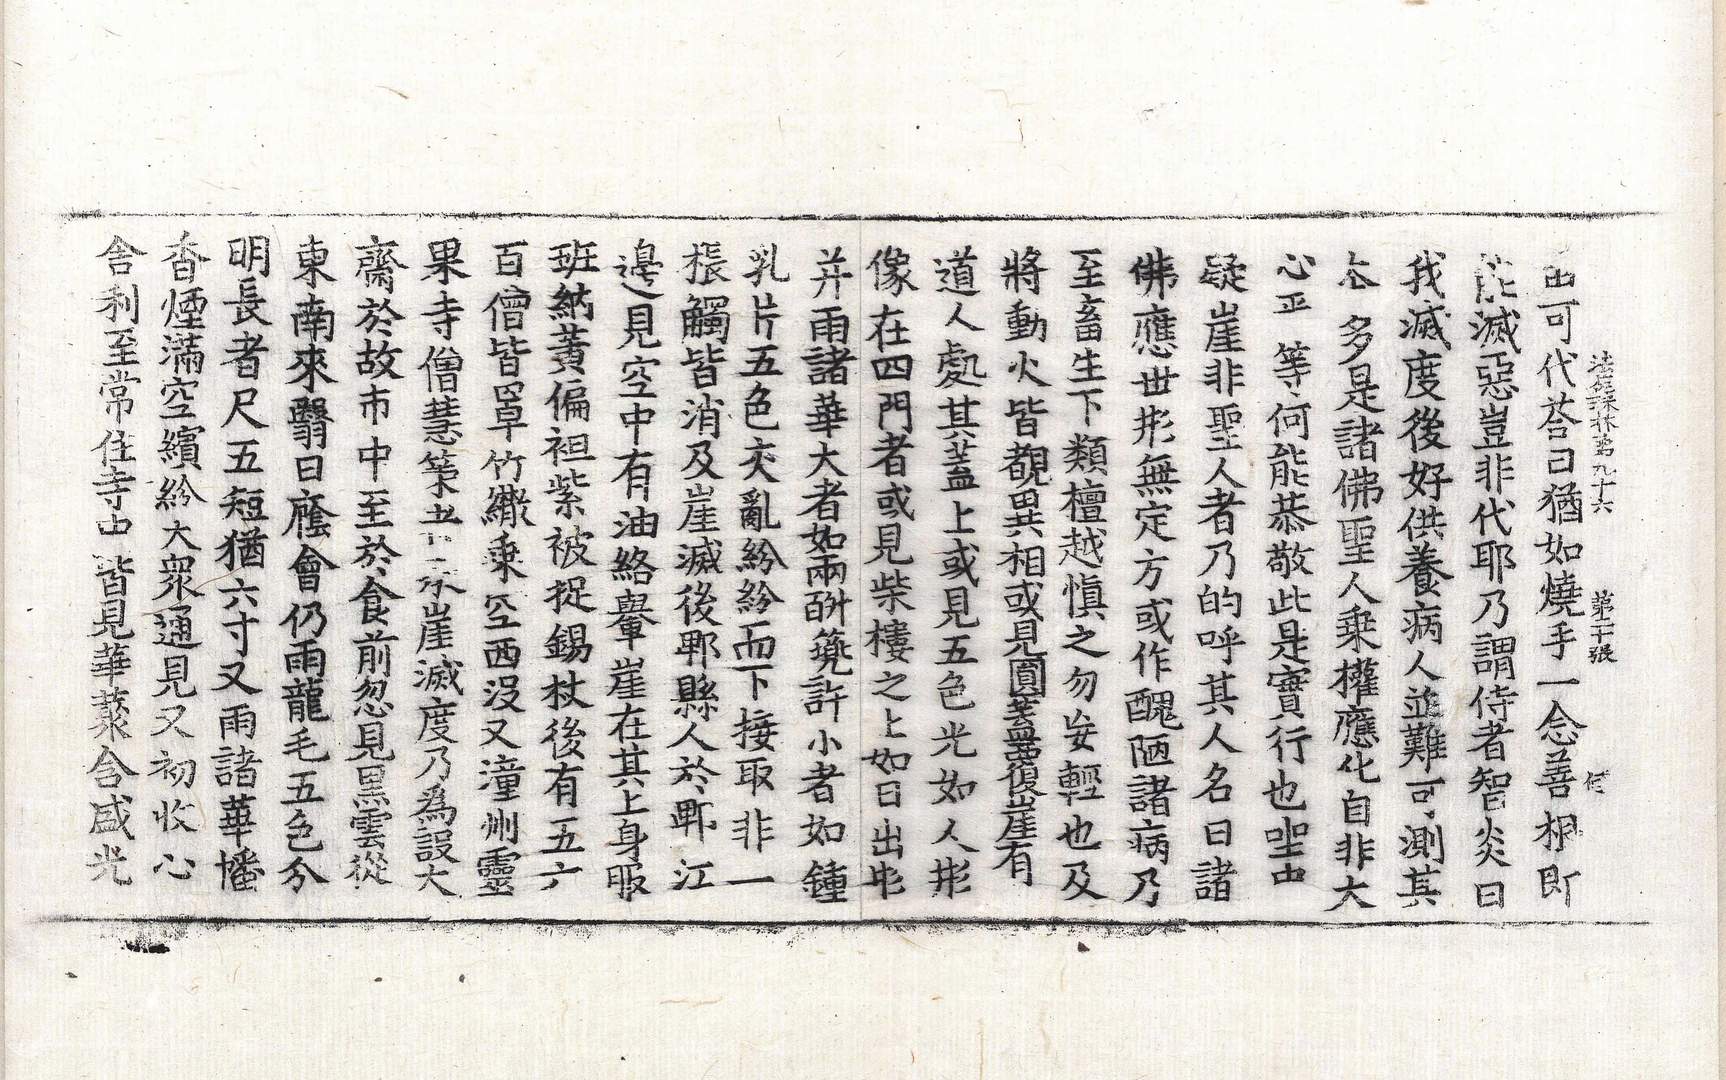 法苑珠林第九十六 第二十張
由可代荅曰猶如燒手一念善根即
能滅惡豈非代耶乃謂侍者智炎曰
我滅度後好供養病人並難可測其
本多是諸佛聖人乗權應化自非大
心平等何能恭敬此是實行也坐中
疑崖非聖人者乃的呼其人名曰諸
佛應世形無定方或作醜陋諸病乃
至畜生下類檀越慎之勿妄輕也及
將動火皆覩異相或見圓蓋覆崖有
道人處其蓋上或見五色光如人形
像在四門者或見柴樓之上如日出形
并雨諸華大者如兩㪷㼽許小者如鍾
乳片五色交亂紛紛而下接取非一
棖觸皆消及崖滅後郫縣人於郫江
邊見空中有油絡轝崖在其上身服
班納黃偏袒紫被捉錫杖後有五六
百僧皆罩竹繖乗空西沒又潼州靈
果寺僧慧策者承崖滅度乃為設大
齋於故市中至於食前忽見黑雲從
東南來翳日䕃會仍雨龍毛五色分
明長者尺五短猶六寸又雨諸華幡
香煙滿空繽紛大衆通見又初收心
舎利至常住寺中皆見華藂含盛光